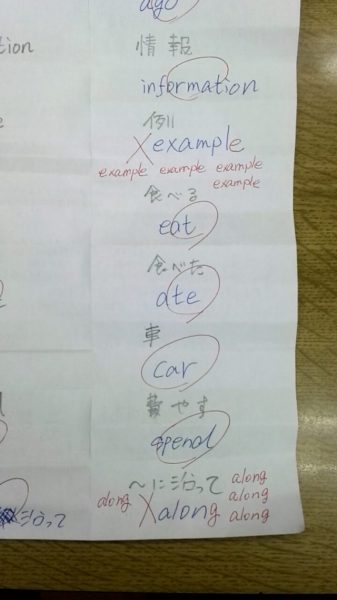 ago
tion
情報
information
例
example
example example example
example
食べる
eat
食べた
ate
車
car
費やす
spend
~に沿って
along
along
along
along
along
沿って